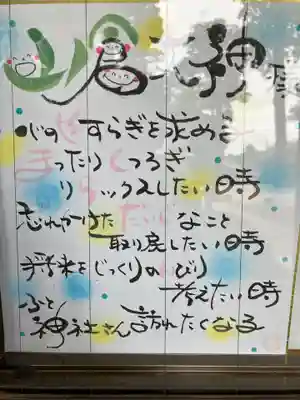 心の すらぎを求める
まったり くつろぎ
リ ックスしたい時
忘れかけた なこと
取り戻したい時
将来をじっくりの びり
考えたい時
ふと
神社さん訪れたくなる